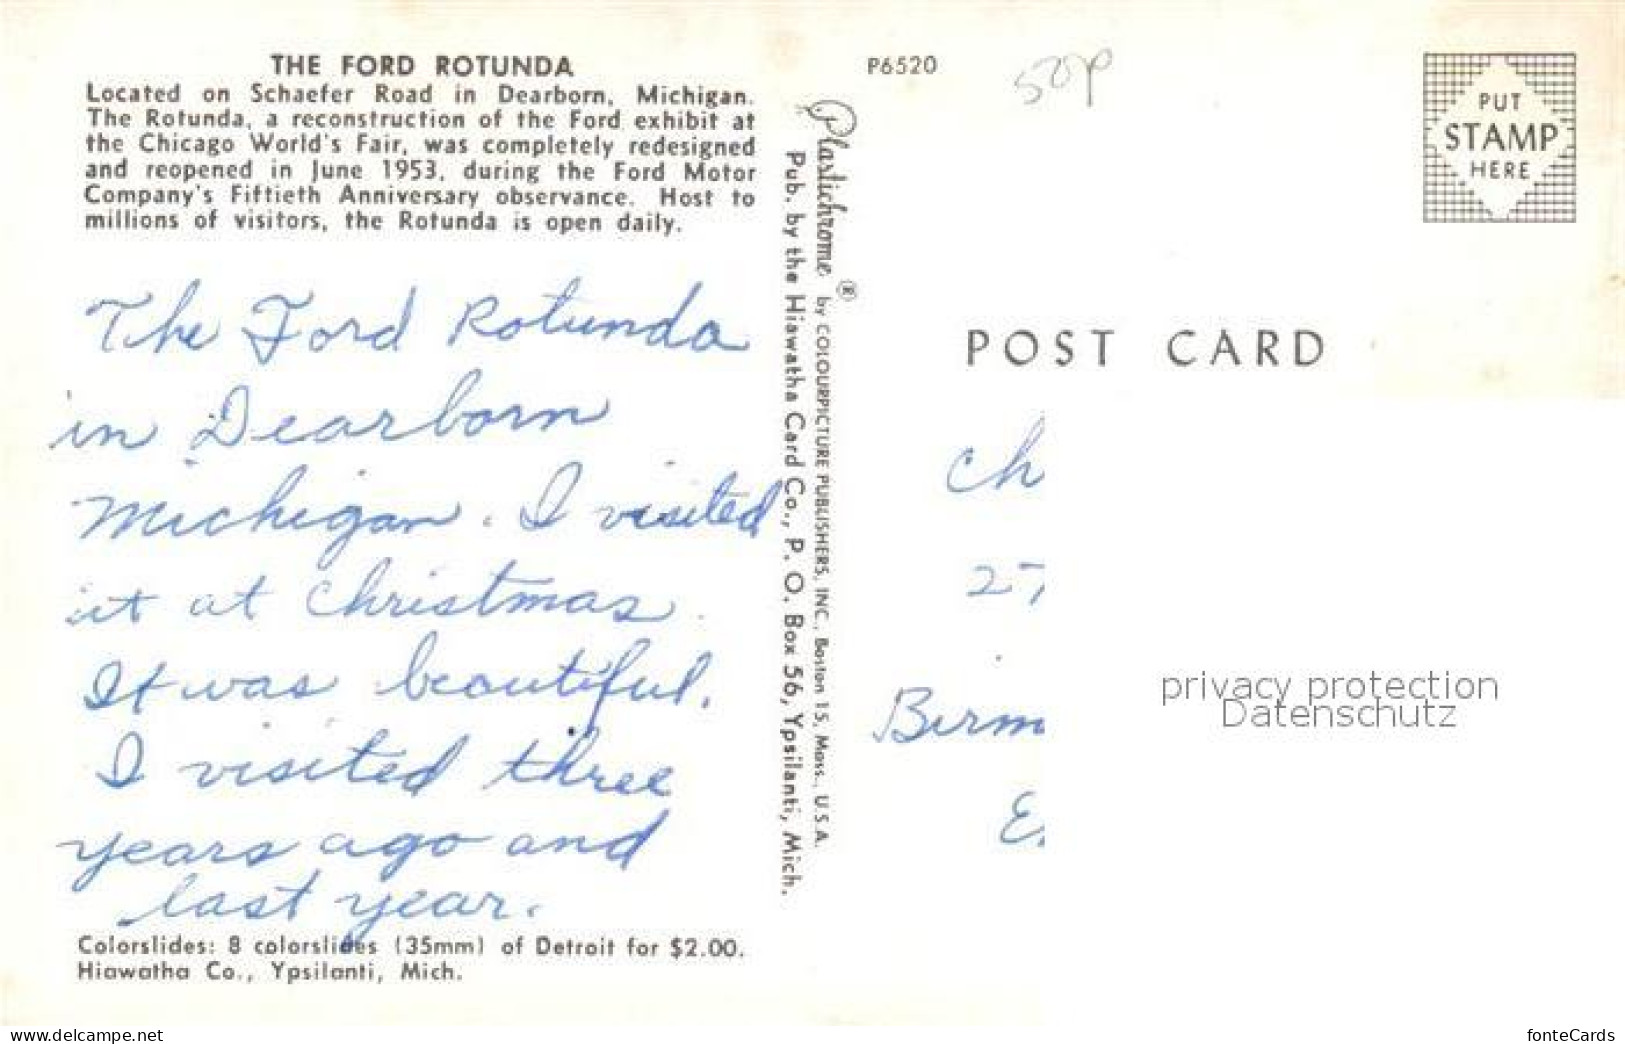 THE FORD ROTUNDA
Located on Schaefer Road in Dearborn, Michigan.
The Rotunda, a reconstruction of the Ford exhibit at
the Chicago World's Fair, was completely redesigned
and reopened in June 1953, during the Ford Motor
Company's Fiftieth Anniversary observance. Host to
millions of visitors, the Rotunda is open daily.
The Ford Rotunda
in Dearborn
Michigan. I visited
it at Christmas.
It was beautiful.
I visited three
years ago and
last year.
Colorslides: 8 colorslides (35mm) of Detroit for $2.00.
Hiawatha Co., Ypsilanti, Mich.
Plastichrome ® by COLOURPICTURE PUBLISHERS, INC., Boston 15, Mass., U.S.A.
Pub. by the Hiawatha Card Co., P. O. Box 56, Ypsilanti, Mich.
P6520
50p
PUT
STAMP
HERE
POST CARD
Ch
27
Birm
E.
privacy protection
Datenschutz
www.delcampe.net
fonteCards